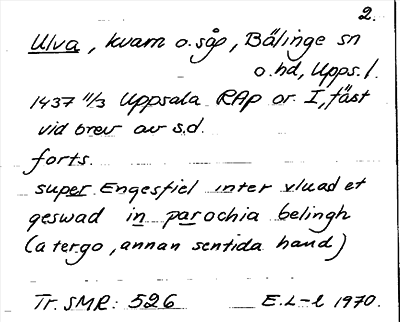 2.
Ulva, kvarn o. såg, Bälinge sn
o. hd, Upps. l.
1437 11/3 Uppsala RAp or. I, fäst
vid brev av s.d.
forts.
super Engesfiel inter vluad et
geswad in parochia belingh
(a tergo, annan sentida hand)
Tr. SMR: 526 E.L-l 1970.